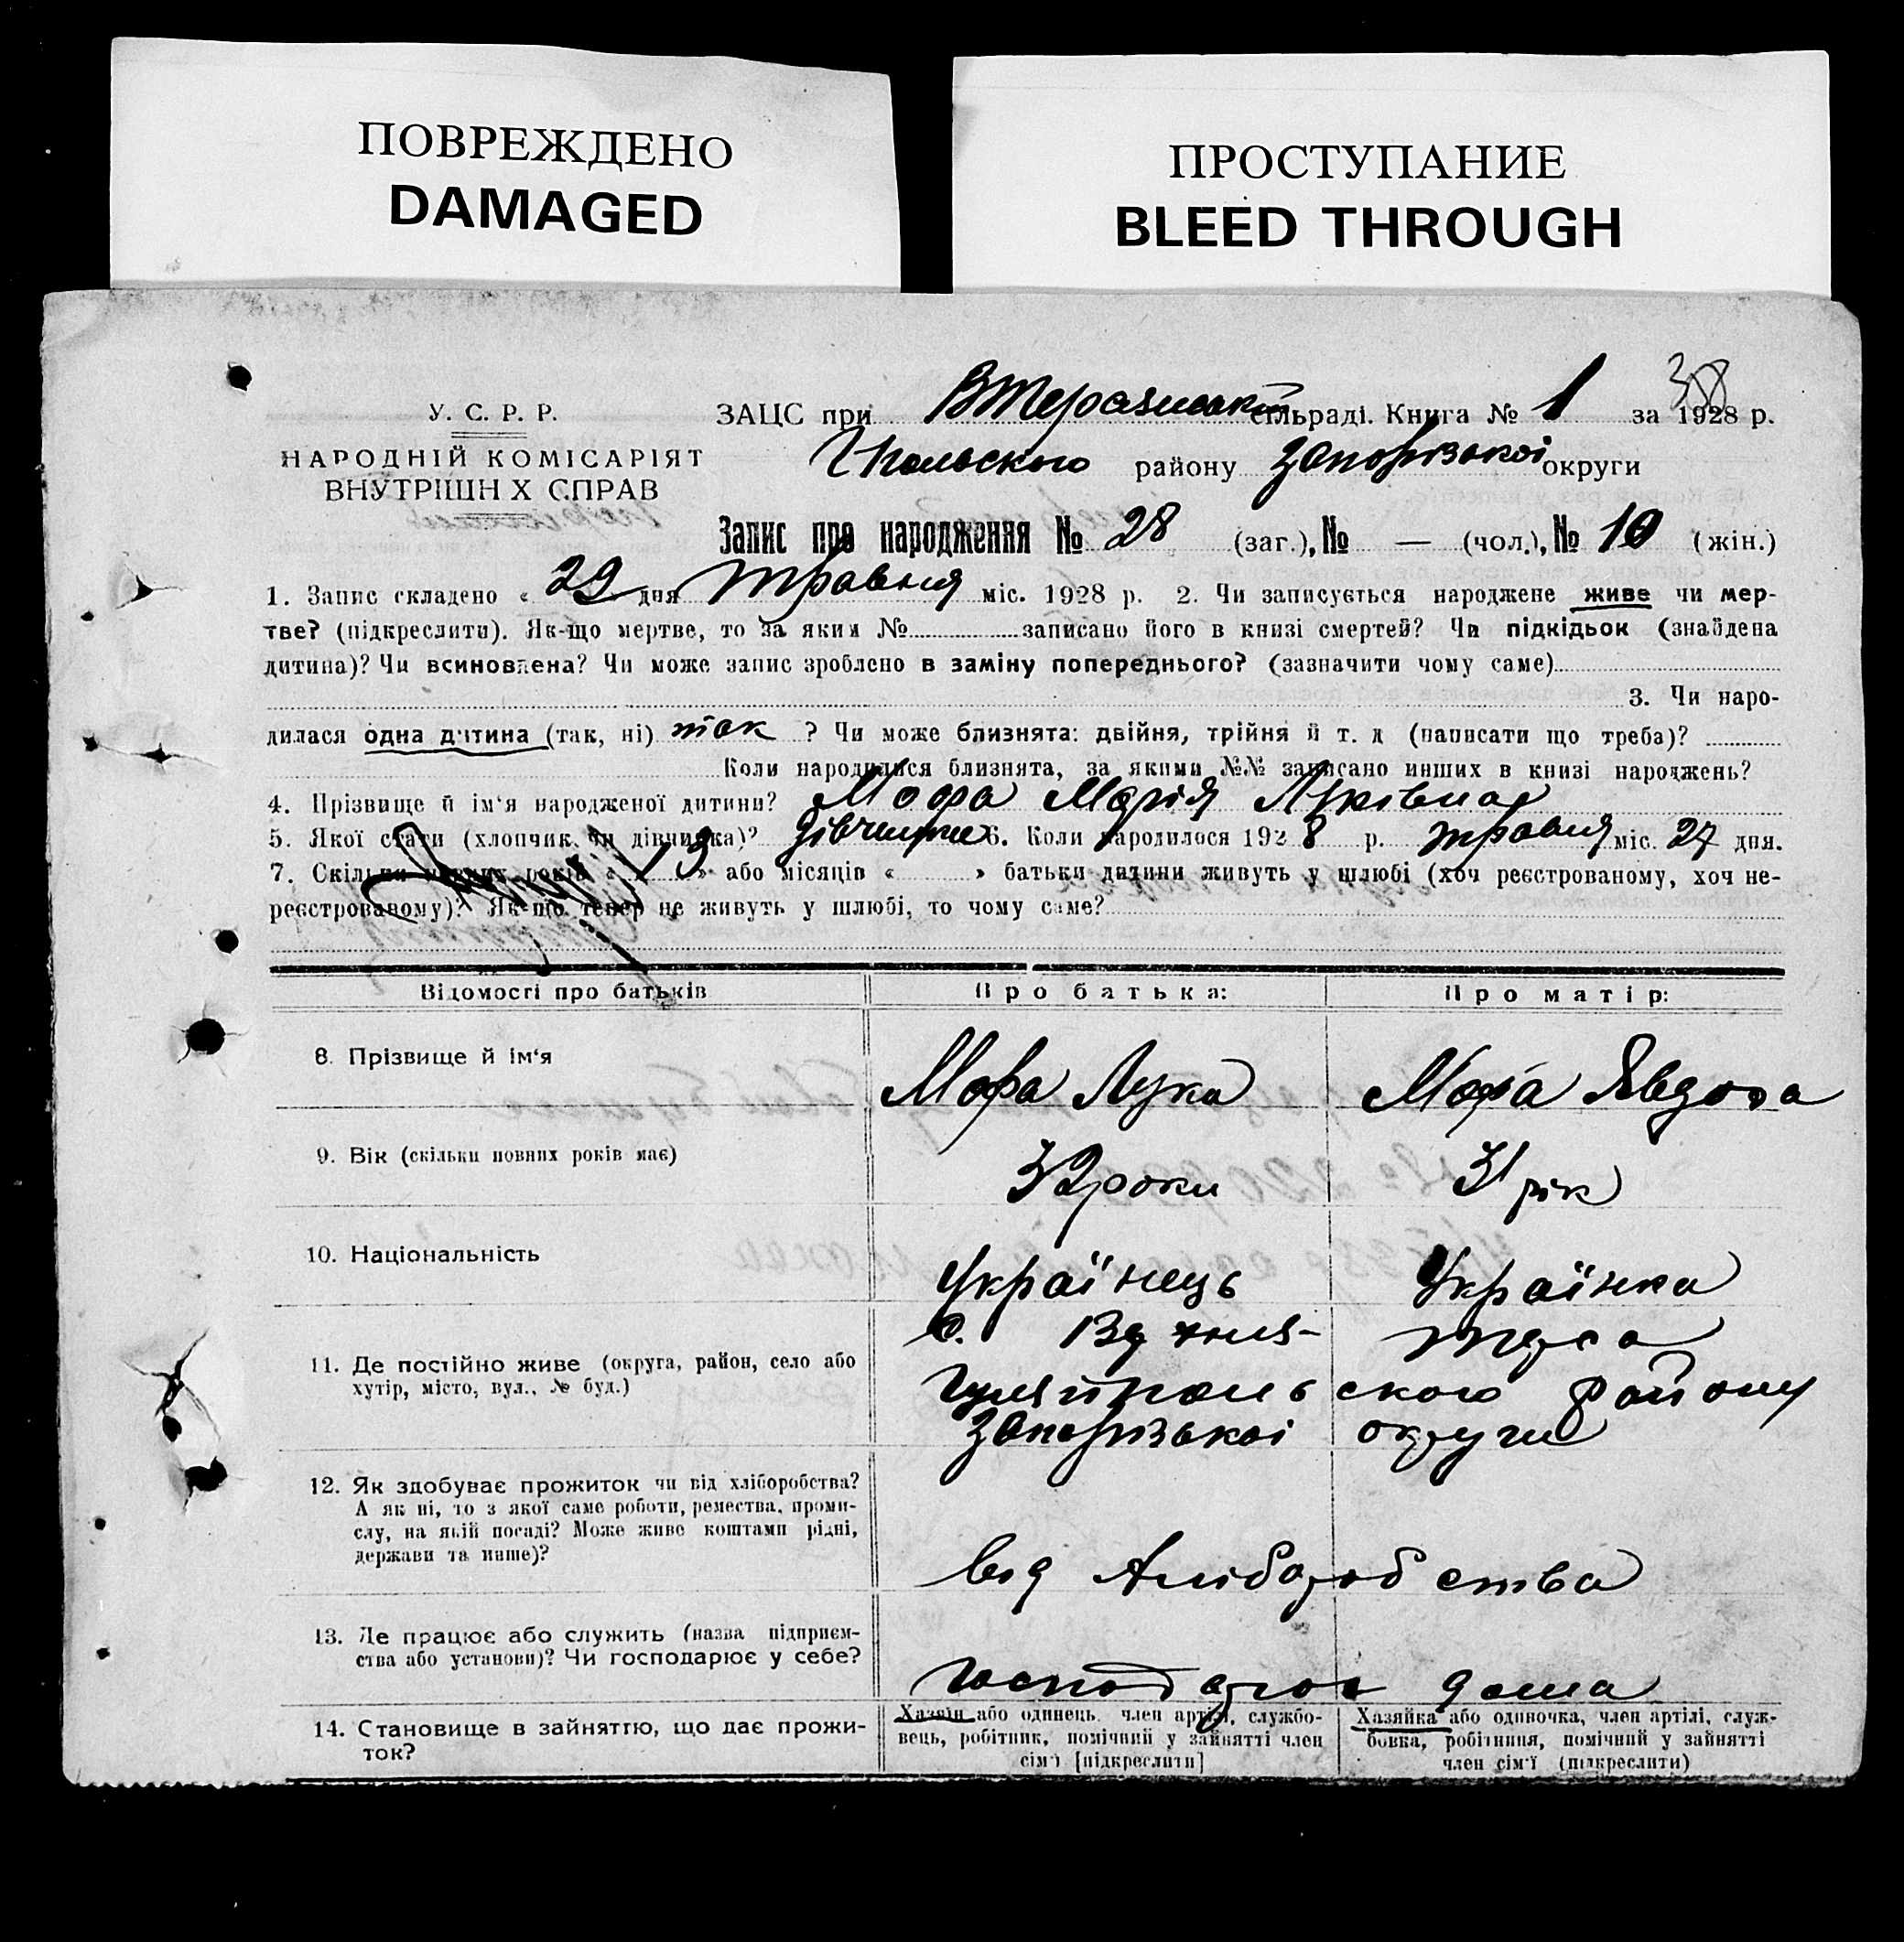 ПОВРЕЖДЕНО
DAMAGED
ПРОСТУПАНИЕ
BLEED THROUGH
У. С. Р. Р.
НАРОДНІЙ КОМІСАРІЯТ
ВНУТРІШН Х СПРАВ
ЗАЦС при сільраді. Книга № 1 за 1928 р.
Гпольского району Запорізької округи
Запис про народження № 28 (заг.), № — (чол.), № 10 (жін.)
1. Запис складено « 29 дня травня міс. 1928 р. 2. Чи записується народжене живе чи мер-
тве? (підкреслити). Як-що мертве, то за яким № записано його в книзі смертей? Чи підкідьок (знайдена
дитина)? Чи всиновлена? Чи може запис зроблено в заміну попереднього? (зазначити чому саме)
3. Чи наро-
дилася одна дитина (так, ні) так ? Чи може близнята: двійня, трійня й т. д (написати що треба)?
Коли народилися близнята, за якими №№ записано инших в книзі народжень?
4. Прізвище й ім‘я народженої дитини? Мофа Марія Луківна
5. Якої стати (хлопчик чи дівчинка)? дівчинка 6. Коли народилося 1928 р. травня міс. 27 дня.
7. Скільки повних років « 13 » або місяців « » батьки дитини живуть у шлюбі (хоч реєстрованому, хоч не-
реєстрованому)? Як-що тепер не живуть у шлюбі, то чому саме?
Відомості про батьків
Про батька:
Про матір:
8. Прізвище й ім‘я
Мофа Лука
Мофа Явдоха
9. Вік (скільки повних років має)
32 роки
31 рік
10. Національність
Українець
Українка
11. Де постійно живе (округа, район, село або
хутір, місто, вул., № буд.)
с.
Гуляйпольского району
Запорізької округи
12. Як здобуває прожиток чи від хліборобства?
А як ні, то з якої саме роботи, ремества, проми-
слу, на якій посаді? Може живе коштами рідні,
держави та инше)?
від хліборобства
13. Де працює або служить (назва підприєм-
ства або установи)? Чи господарює у себе?
дома
14. Становище в зайняттю, що дає прожи-
ток?
Хазяїн або одинець, член артілі, службо-
вець, робітник, помічний у зайнятті член
сім‘ї [підкреслити]
Хазяйка або одиночка, член артілі, служ-
бовка, робітниця, помічний у зайнятті
член сім‘ї (підкреслити)